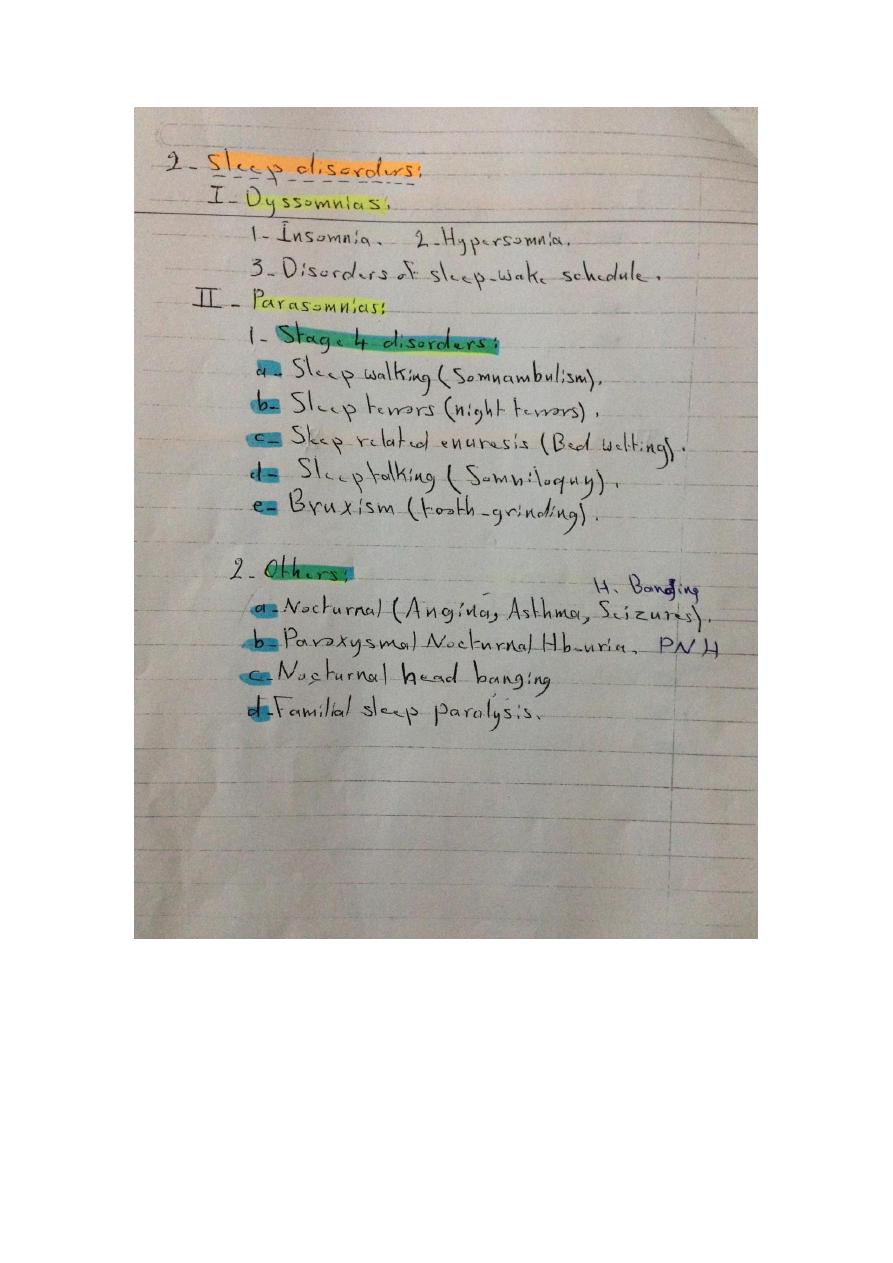 2- Sleep disorders:
I- Dyssomnias:
1- Insomnia. 2-Hypersomnia.
3- Disorders of sleep-wake schedule.
II- Parasomnias:
1- Stage 4 disorders:
a- Sleep walking (Somnambulism).
b- Sleep terrors (night terrors).
c- Sleep related enuresis (Bed wetting).
d- Sleep talking (Somniloquy).
e- Bruxism (tooth-grinding).
2- Others:
H. Banging
a- Nocturnal (Angina, Asthma, Seizures).
b- Paroxysmal Nocturnal Hb-uria. PNH
c- Nocturnal head banging
d- Familial sleep paralysis.